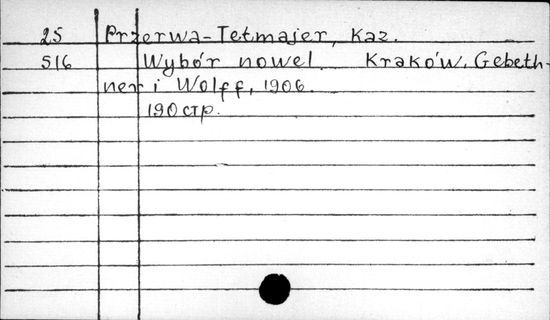 25 Przerwa-Tetmajer, Kaz.
516 Wybór nowel. Kraków, Gebeth-
ner i Wolff, 1906.
190 стр.